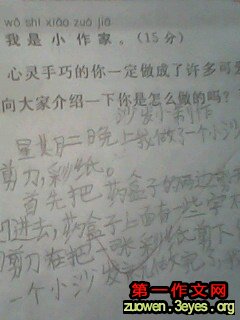 wǒ shì xiǎo zuò jiā
我 是 小 作 家 。(15 分)
心灵手巧的你一定做成了许多可
向大家介绍一下你是怎么做的吗?
沙发制作
星期二晚上我做了一个小沙
剪刀,彩纸。
首先把药盒子的两边剪
进去,药盒子上面有些字
剪刀在把一张彩纸剪下
一个小沙发
第一作文网
zuowen.3eyes.org